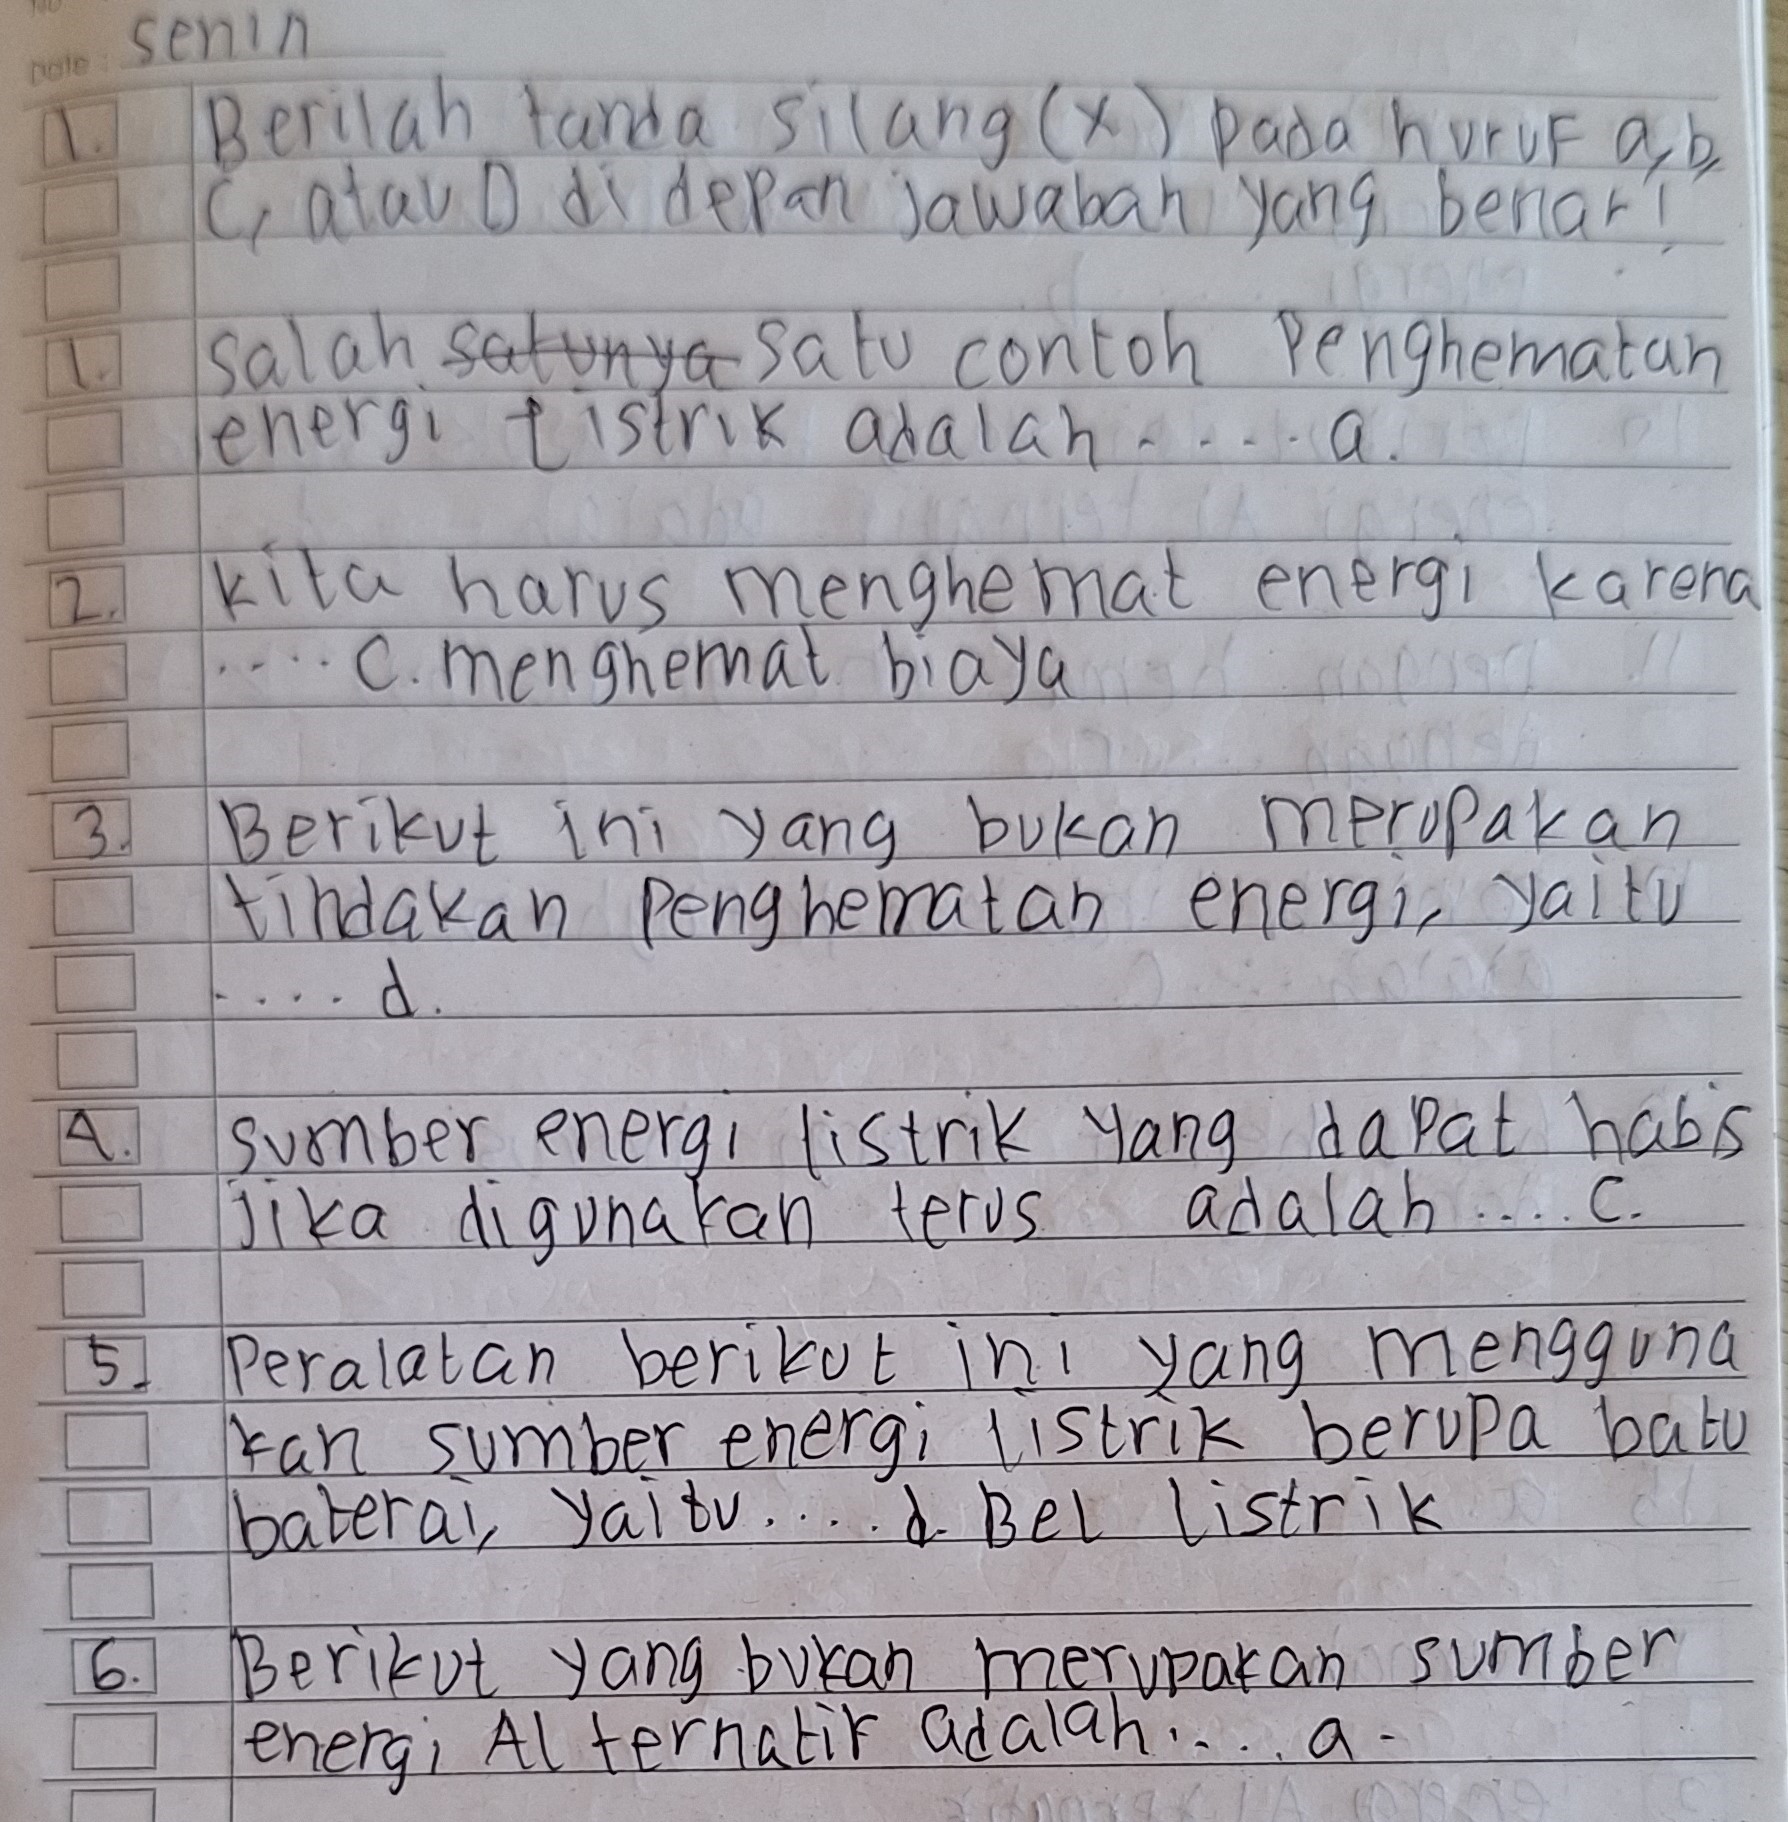 No
Date: senin
1. Berilah tanda silang (x) pada huruf a, b,
C, atau D di depan jawaban yang benar!
1. salah satunya satu contoh Penghematan
energi listrik adalah ..... a.
2. kita harus menghemat energi karena
.... C. menghemat biaya
3. Berikut ini yang bukan merupakan
tindakan Penghematan energi, yaitu
.... d.
4. sumber energi listrik yang dapat habis
jika digunakan terus adalah .... C.
5. Peralatan berikut ini yang mengguna
kan sumber energi listrik berupa batu
baterai, yaitu .... d. Bel listrik
6. Berikut yang bukan merupakan sumber
energi Alternatif adalah .... a.